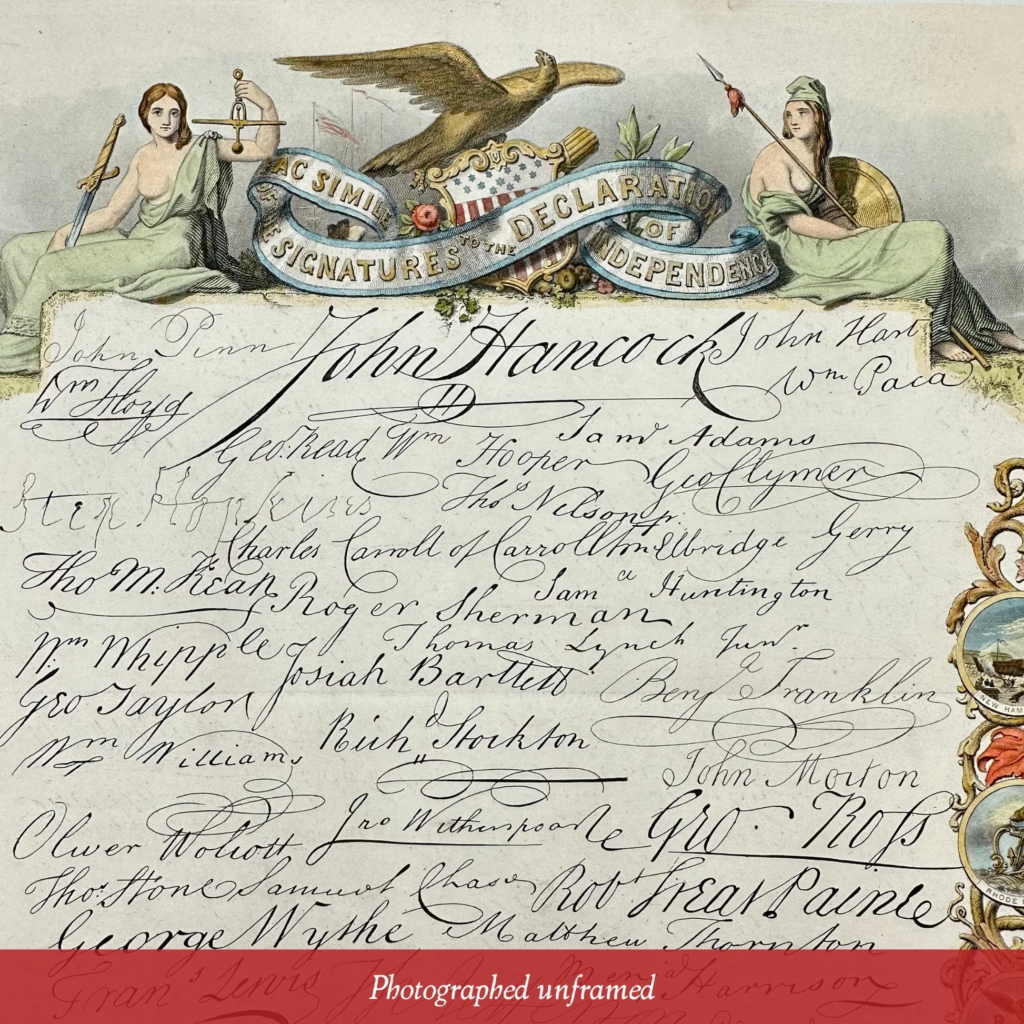 FAC SIMILE
OF THE SIGNATURES TO THE DECLARATION
OF INDEPENDENCE
John Penn John Hancock John Hart
Wm Floyd Wm Paca
Geo. Read Wm Hooper Saml Adams
Geo Clymer
Step Hopkins Thos Nelson jr.
Charles Carroll of Carrollton Elbridge Gerry
Tho M: Kean Roger Sherman Saml Huntington
Wm Whipple Thomas Lynch Junr.
Geo Taylor Josiah Bartlett Benja Franklin
Wm Williams Richd Stockton
John Morton
Oliver Wolcott Jno Witherspoon Geo. Ross
Thos. Stone Samuel Chase Robt Treat Paine
George Wythe Matthew Thornton
Frans Lewis Benja Harrison
NEW HAM
RHODE
Photographed unframed